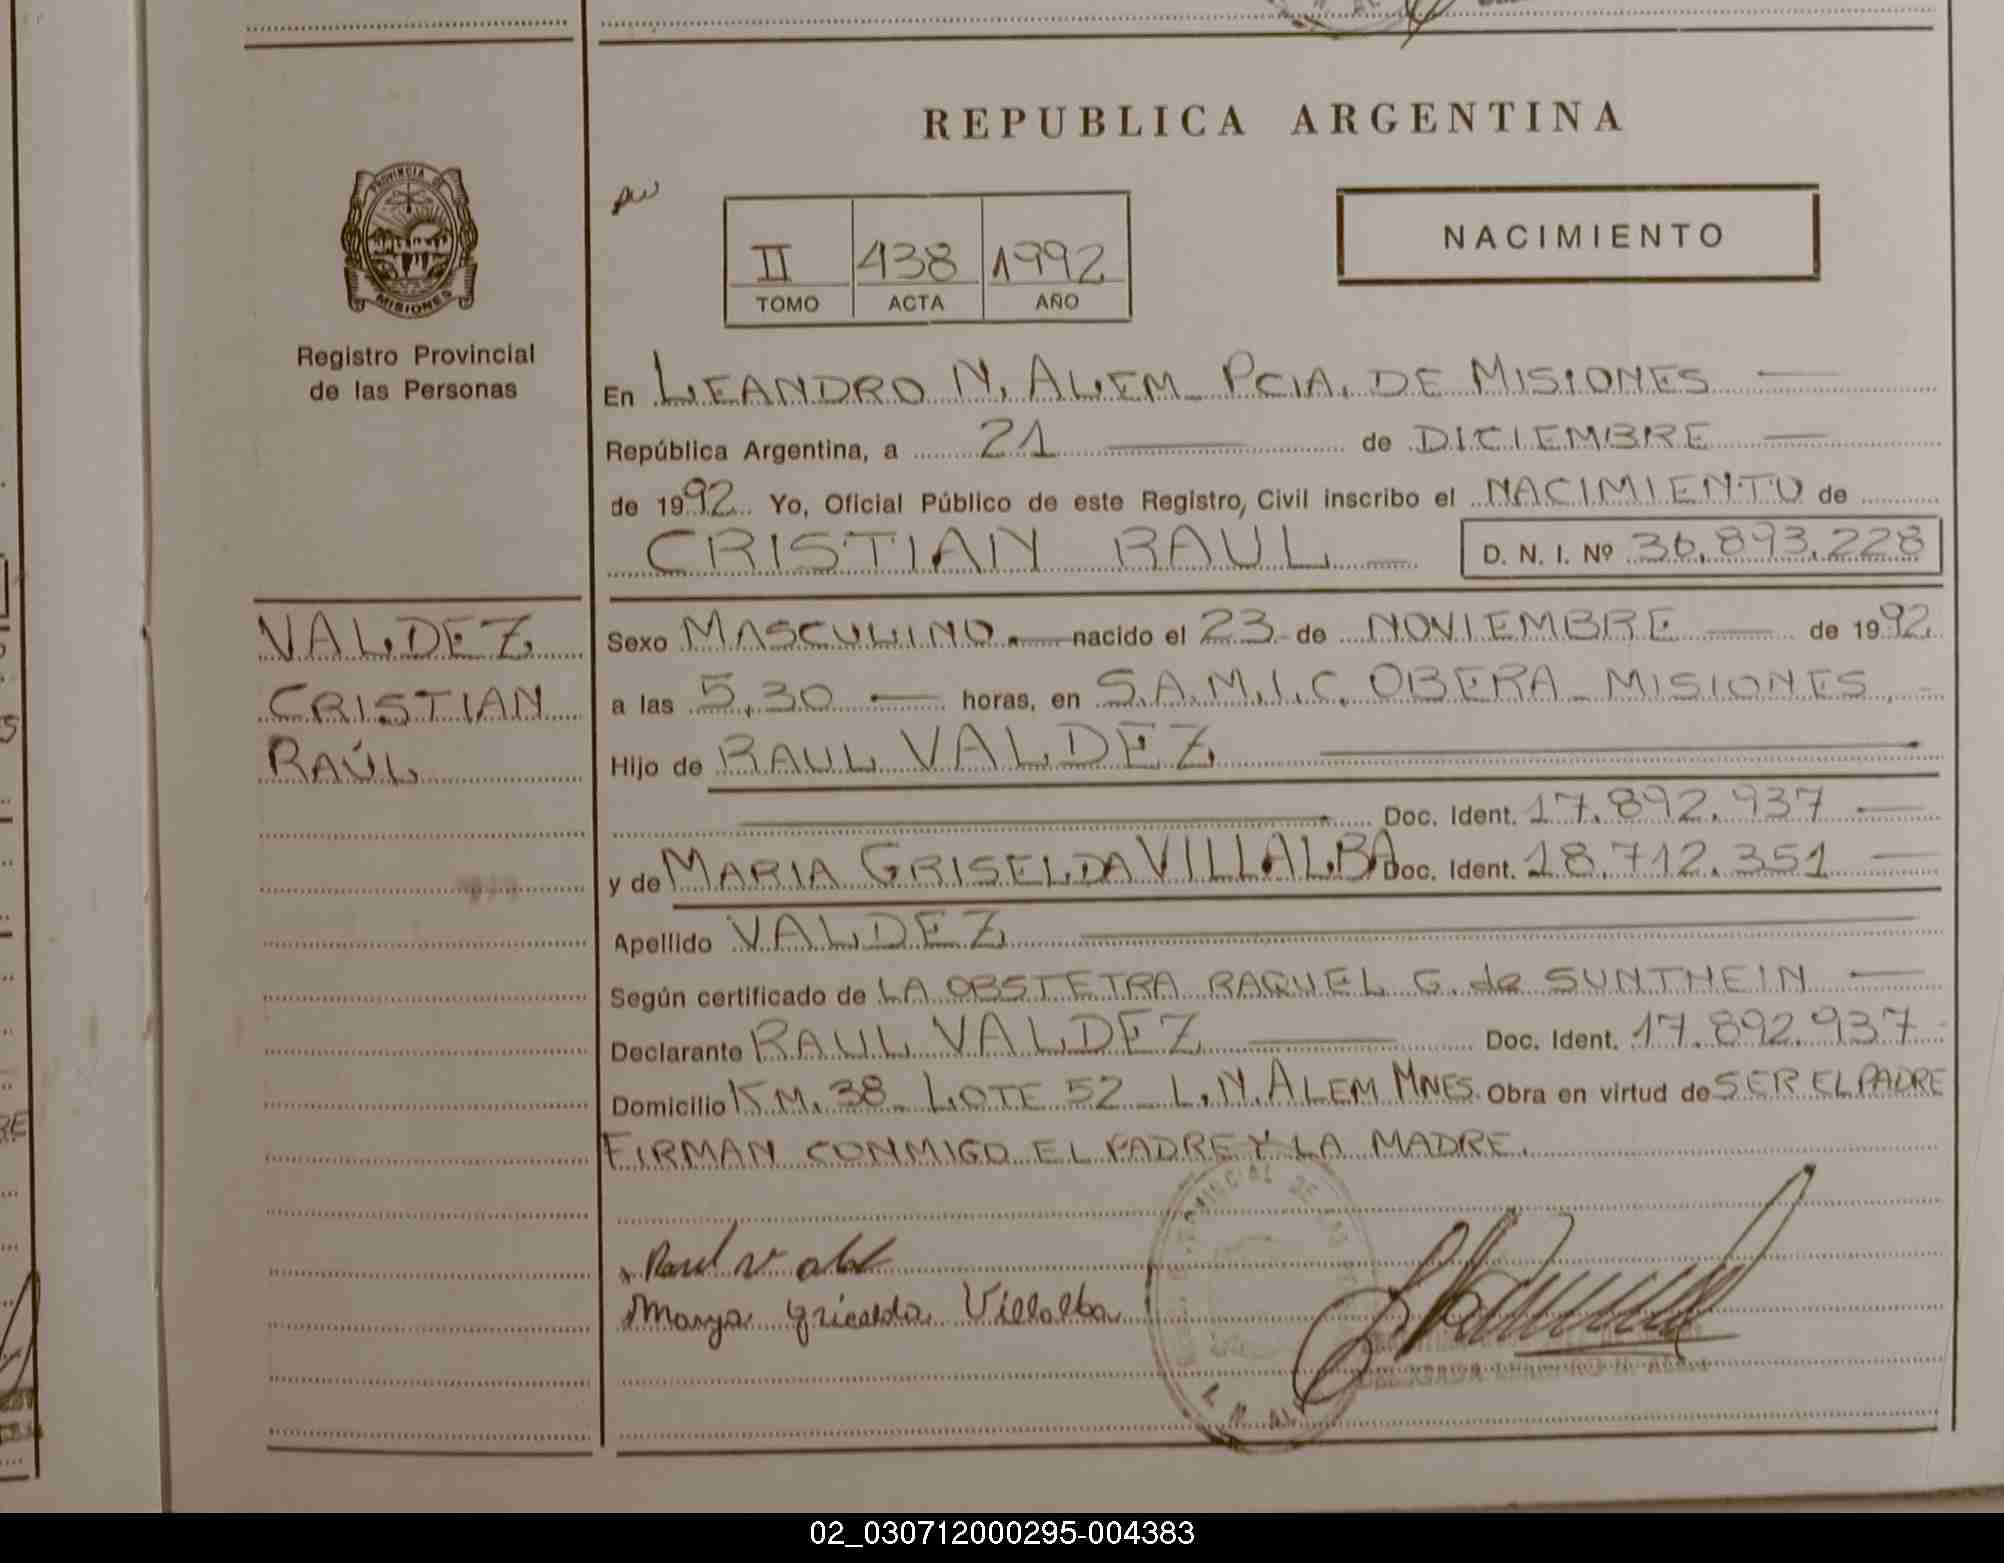 REPUBLICA ARGENTINA
PROVINCIA DE
MISIONES
Registro Provincial
de las Personas
NACIMIENTO
II 438 1992
TOMO ACTA AÑO
En LEANDRO N. ALEM PCIA. DE MISIONES
República Argentina, a 21 de DICIEMBRE
de 1992 Yo, Oficial Público de este Registro Civil inscribo el NACIMIENTO de
CRISTIAN RAUL D. N. I. Nº 36.893.228
VALDEZ
CRISTIAN
RAÚL
Sexo MASCULINO. nacido el 23 de NOVIEMBRE de 1992
a las 5,30 horas, en S.A.M.I.C. OBERA - MISIONES
Hijo de RAUL VALDEZ
Doc. Ident. 17.892.937
y de MARIA GRISELDA VILLALBA Doc. Ident. 18.712.351
Apellido VALDEZ
Según certificado de LA OBSTETRA RAQUEL G. de SUNTHEIN
Declarante RAUL VALDEZ Doc. Ident. 17.892.937
Domicilio KM. 38 - LOTE 52 - L.N. ALEM MNES. Obra en virtud de SER EL PADRE
FIRMAN CONMIGO EL PADRE Y LA MADRE.
Marya Gricelda Villalba
02_030712000295-004383